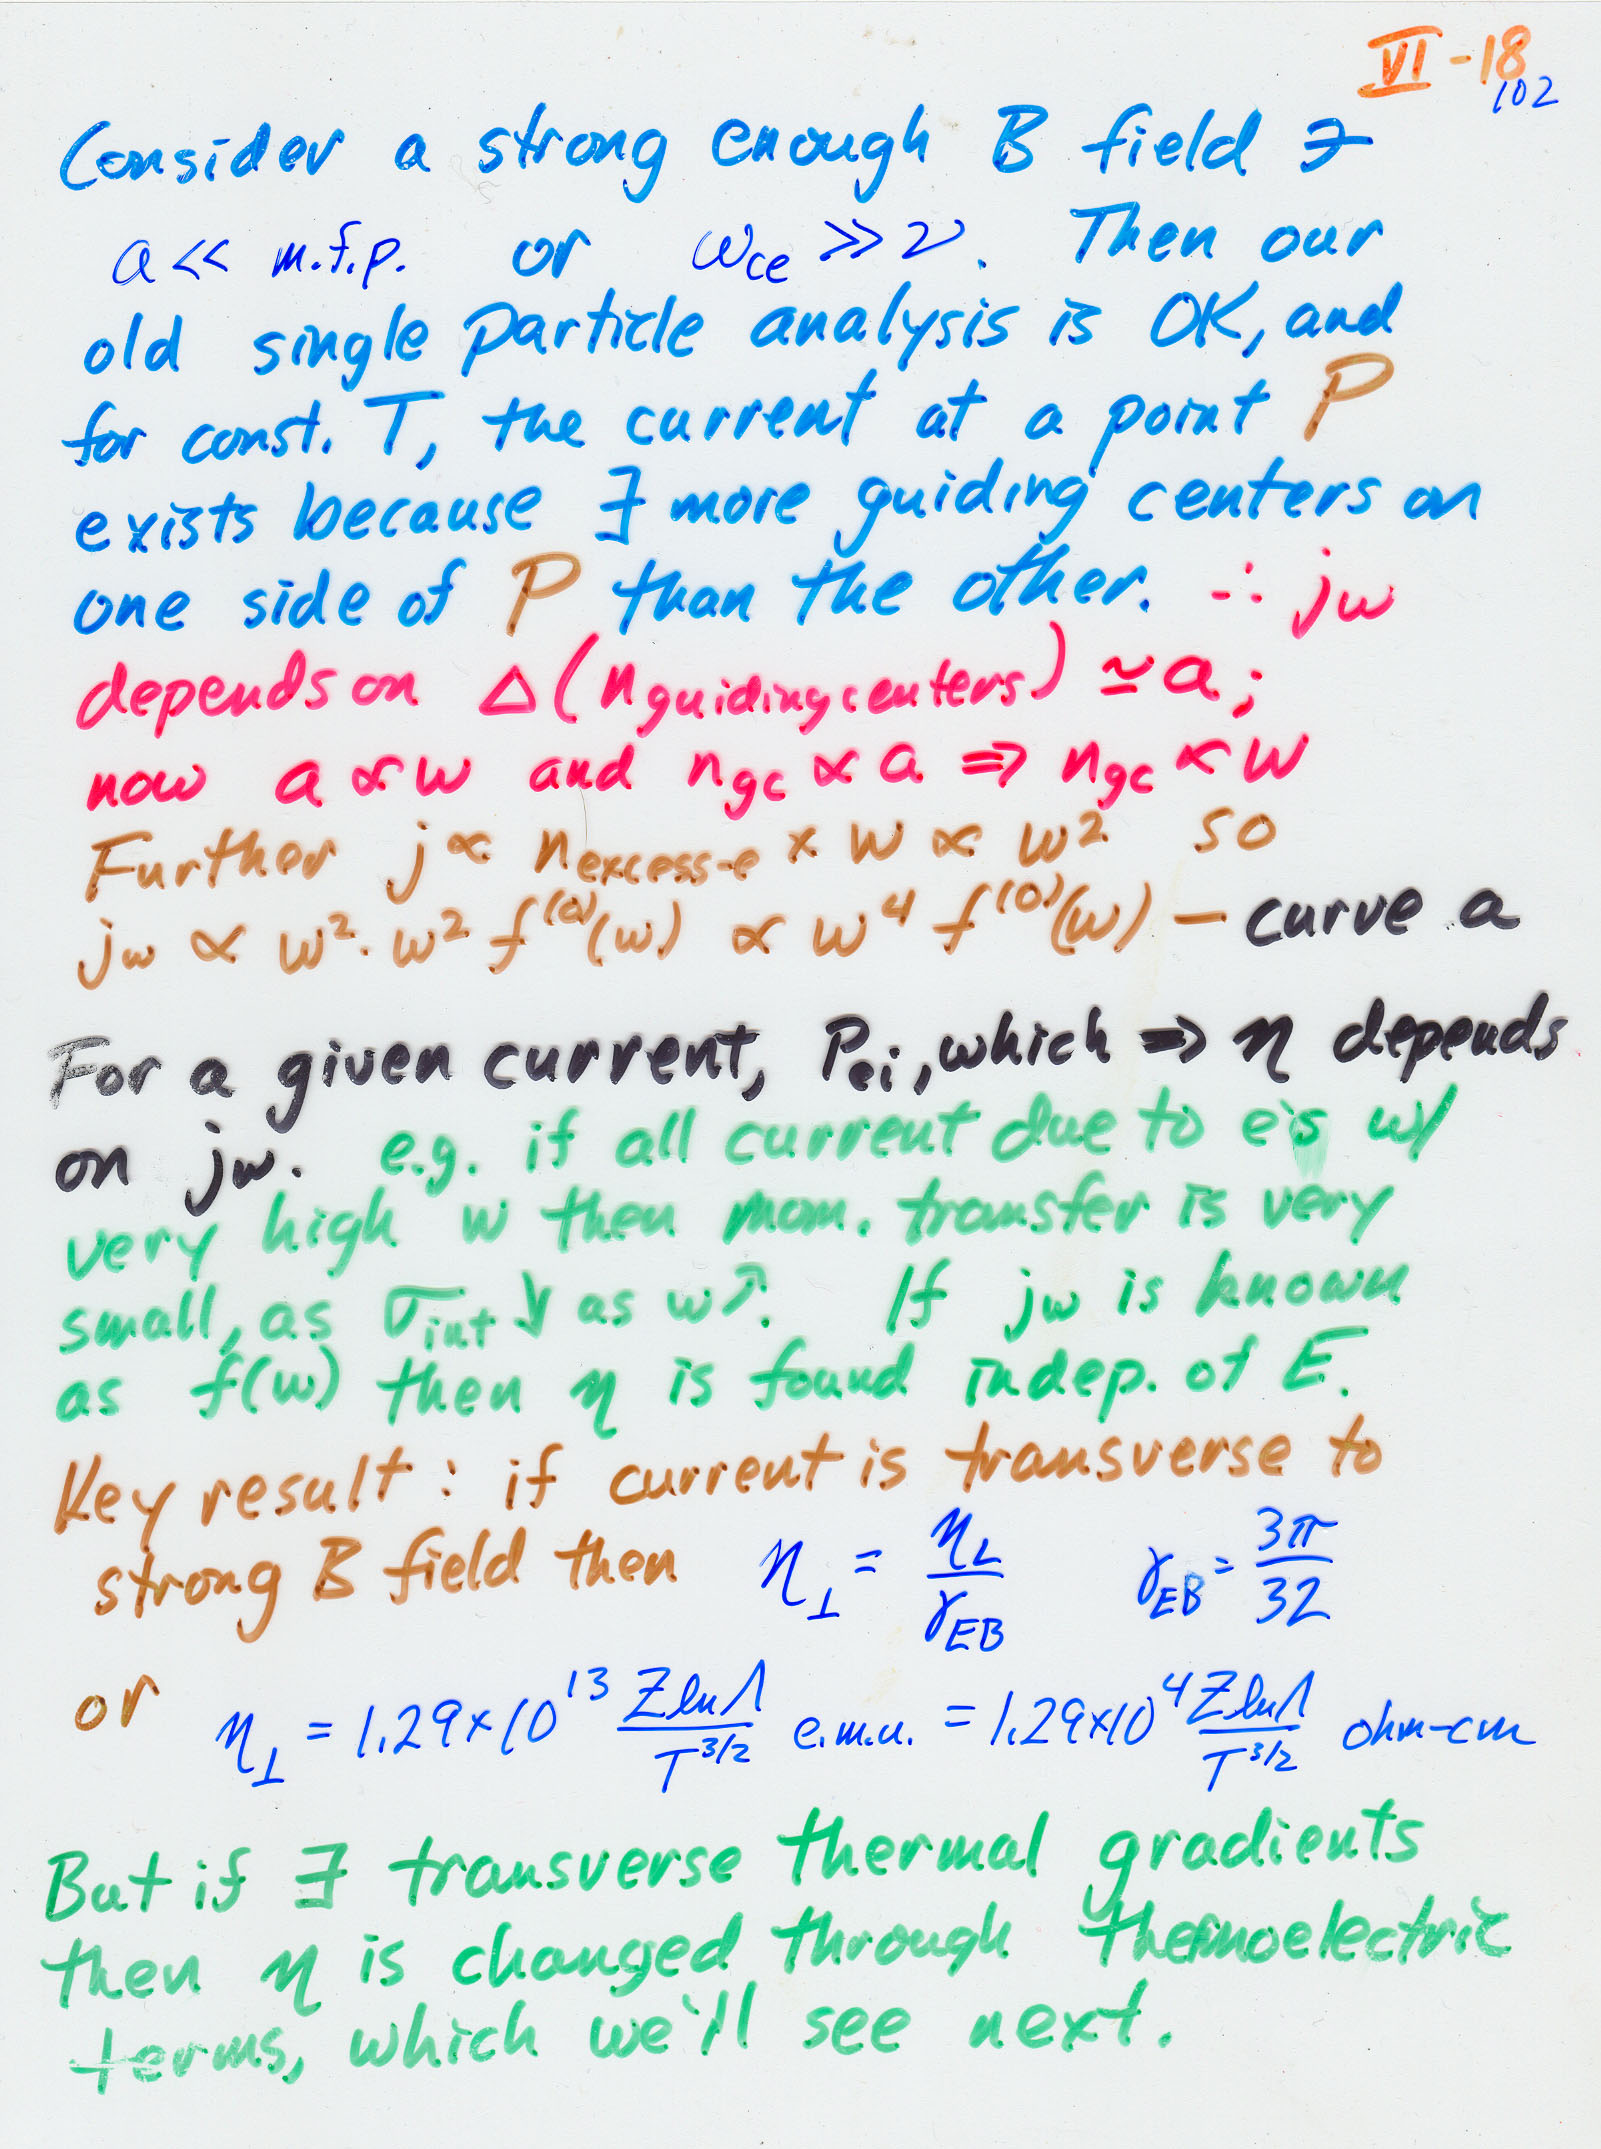 VI - 18
102
Consider a strong enough B field ∋
a << m.f.p. or ω_ce >> ν. Then our
old single particle analysis is OK, and
for const. T, the current at a point P
exists because ∃ more guiding centers on
one side of P than the other. ∴ j_w
depends on Δ(n_guiding centers) ≃ a;
now a ∝ w and n_gc ∝ a ⇒ n_gc ∝ w
Further j ∝ n_excess-e × w ∝ w² so
j_w ∝ w² · w² f^(0)(w) ∝ w⁴ f^(0)(w) — curve a
For a given current, P_ei, which ⇒ η depends
on j_w. e.g. if all current due to e's w/
very high w then mom. transfer is very
small, as σ_int ↓ as w↗. If j_w is known
as f(w) then η is found indep. of E.
Key result: if current is transverse to
strong B field then η_⊥ = η_L/γ_EB γ_EB = 3π/32
or η_⊥ = 1.29×10^13 Z ln Λ/T^3/2 e.m.u. = 1.29×10^4 Z ln Λ/T^3/2 ohm-cm
But if ∃ transverse thermal gradients
then η is changed through thermoelectric
terms, which we'll see next.